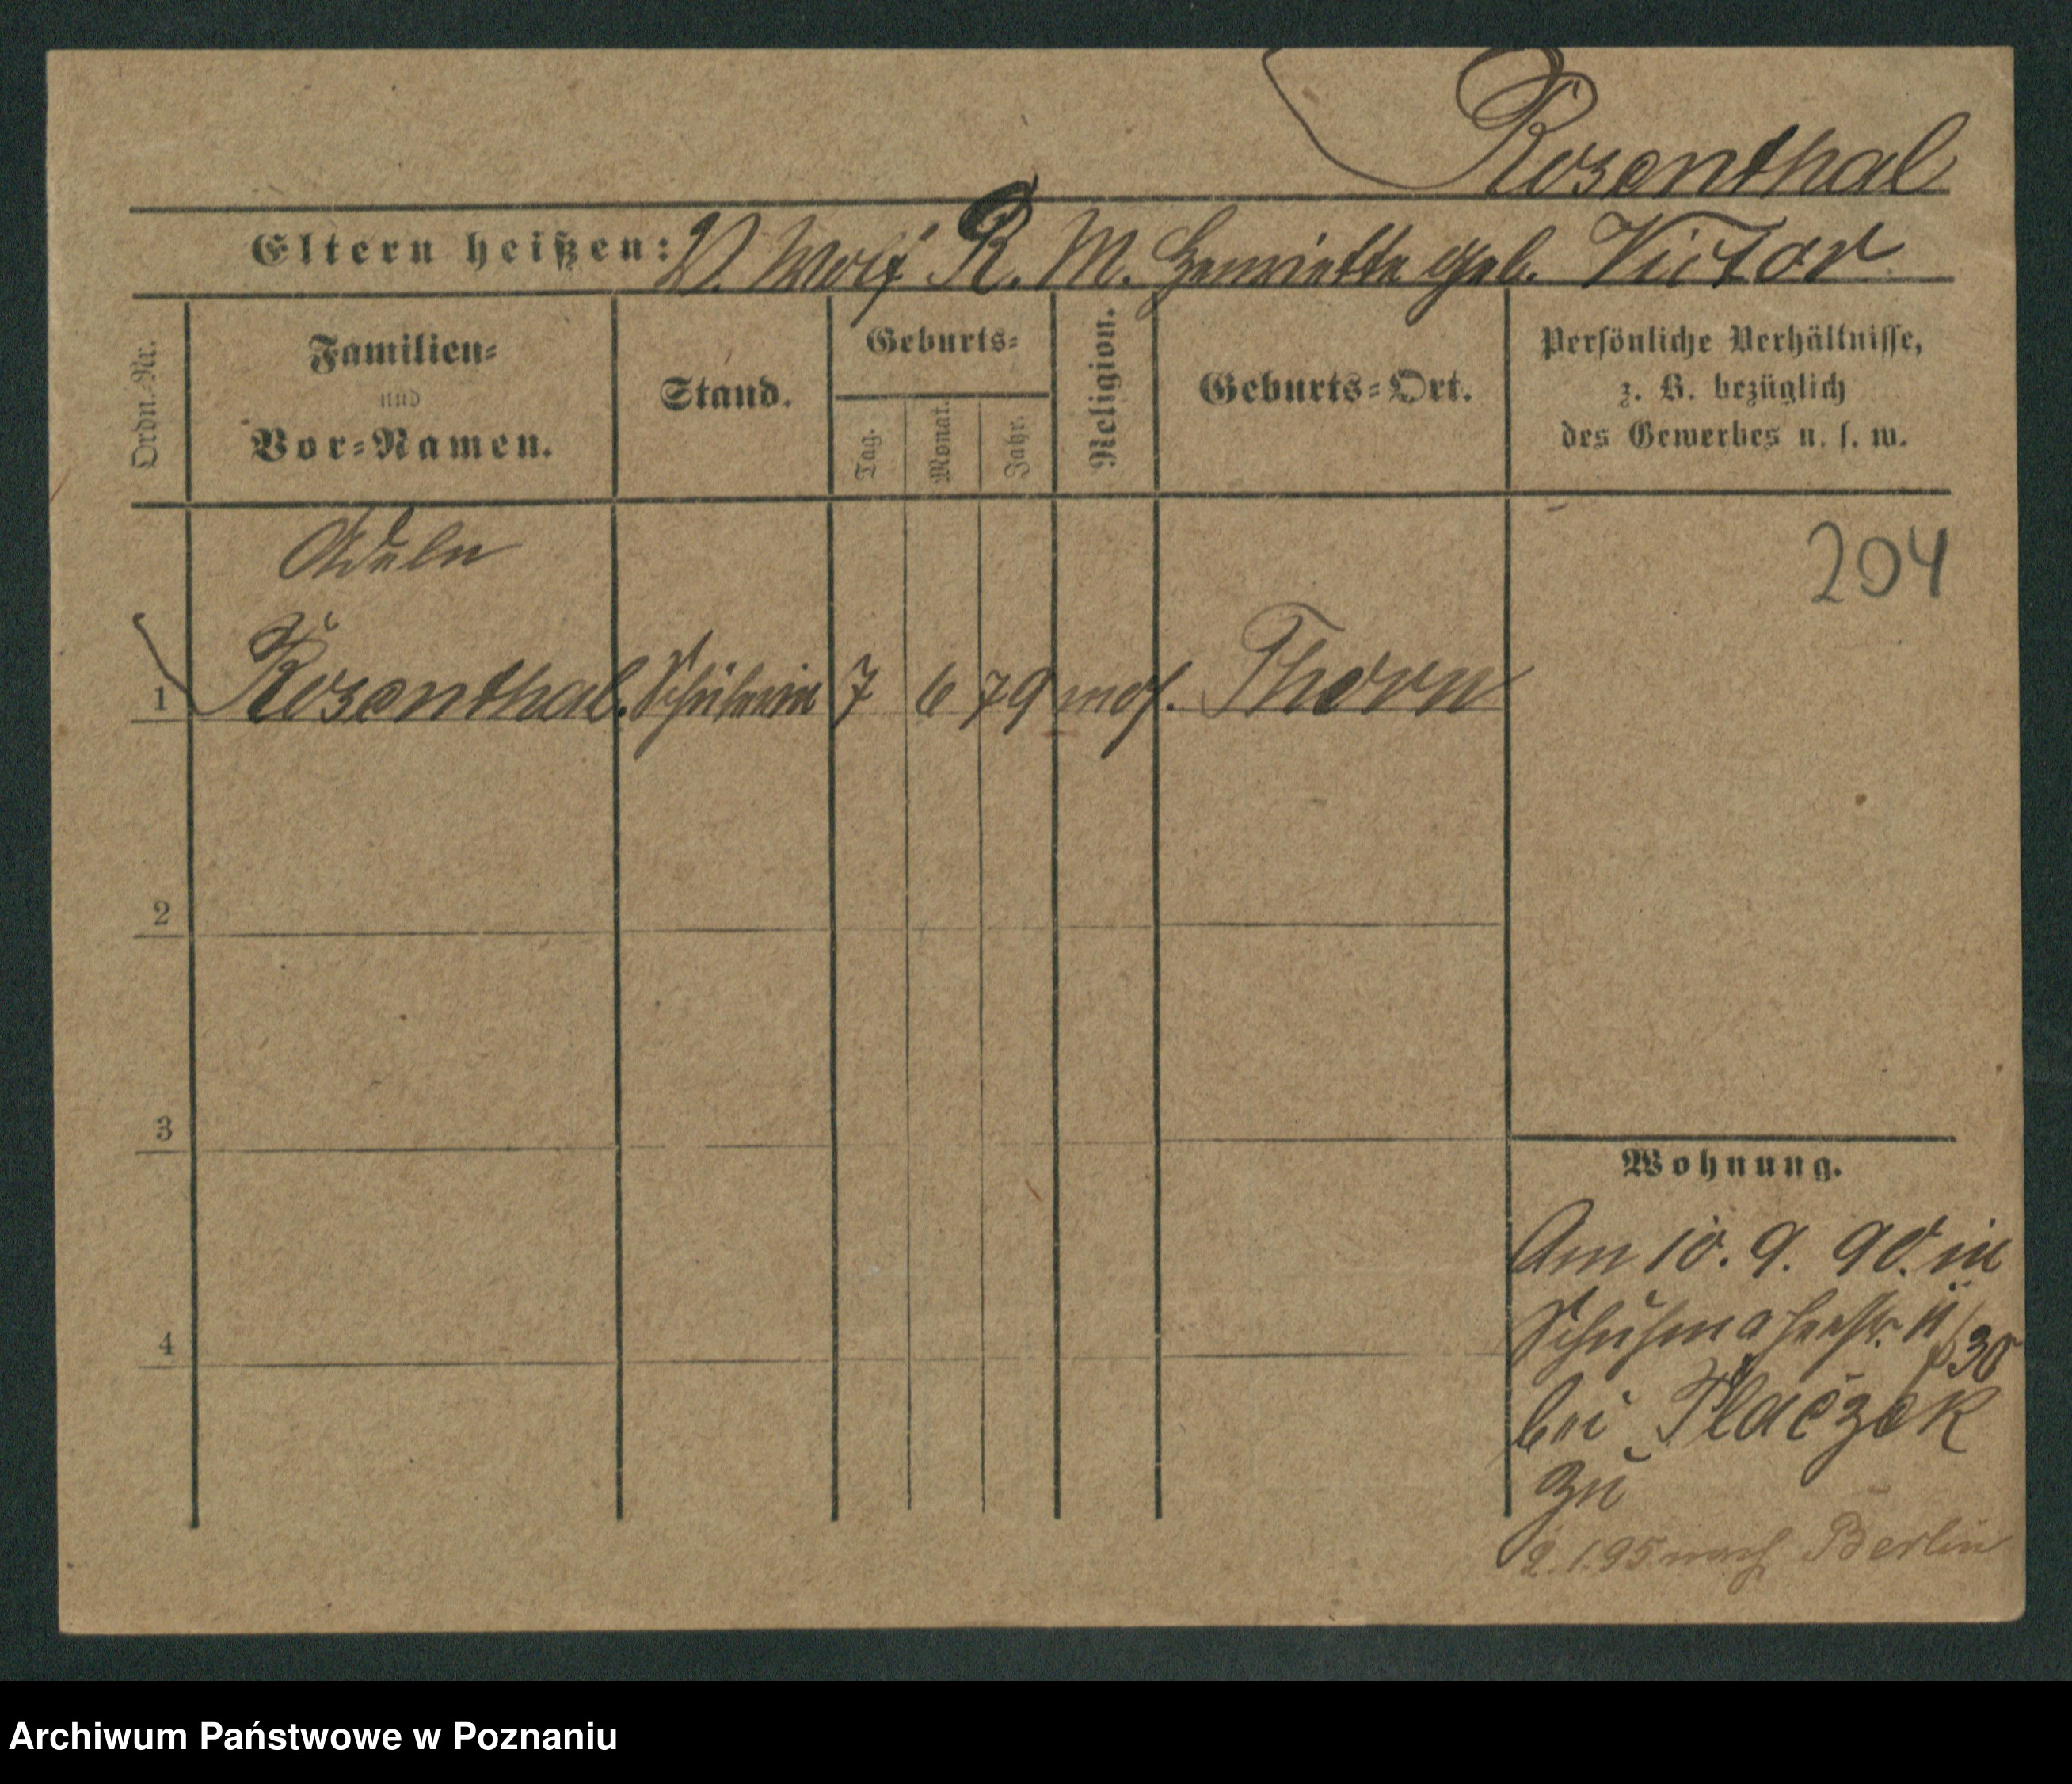 Rosenthal
Eltern heißen: V. Wolf R. M. Henriette geb. Victor
Ordn.-Nr.
Familien-
und
Vor-Namen.
Stand.
Geburts-
Tag.
Monat.
Jahr.
Religion.
Geburts-Ort.
Persönliche Verhältnisse,
z. B. bezüglich
des Gewerbes u. s. w.
204
Adele
1 Rosenthal. Schülerin 7 6 79 mos. Thorn
2
3
4
Wohnung.
Am 10. 9. 90. in
Schuhmacherstr. 11/30
bei Placzek
zu
2.1.95 nach Berlin
Archiwum Państwowe w Poznaniu